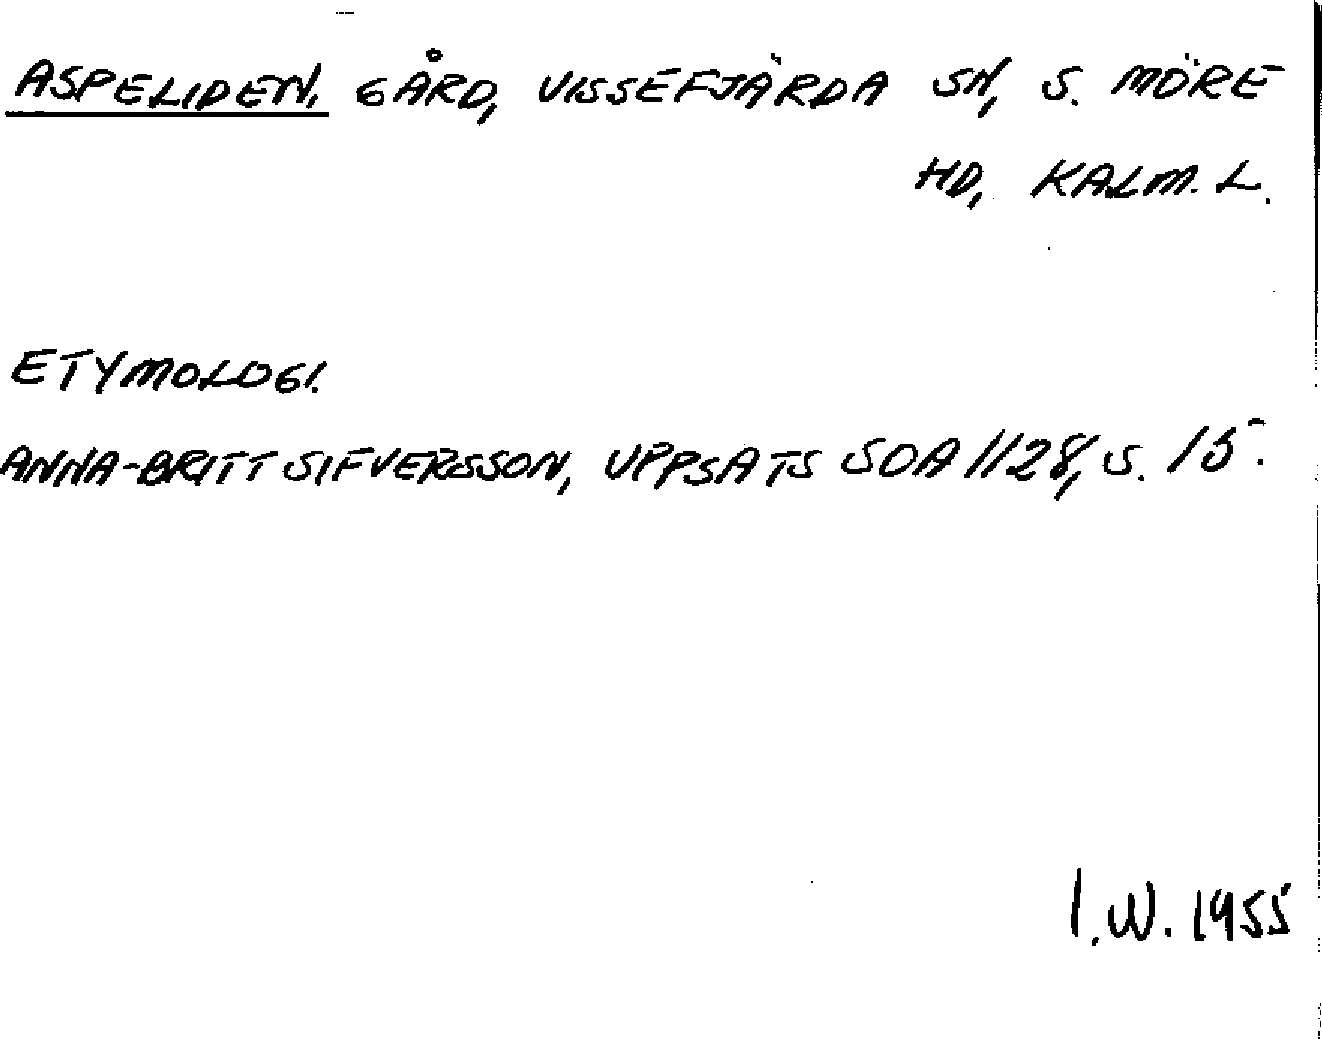 ASPELIDEN. GÅRD, VISSEFJÄRDA SN, S. MÖRE
HD, KALM. L.
ETYMOLOGI.
ANNA-BRITT SIFVERSSON, UPPSATS SOA 1128, S. 15.
I.W. 1955